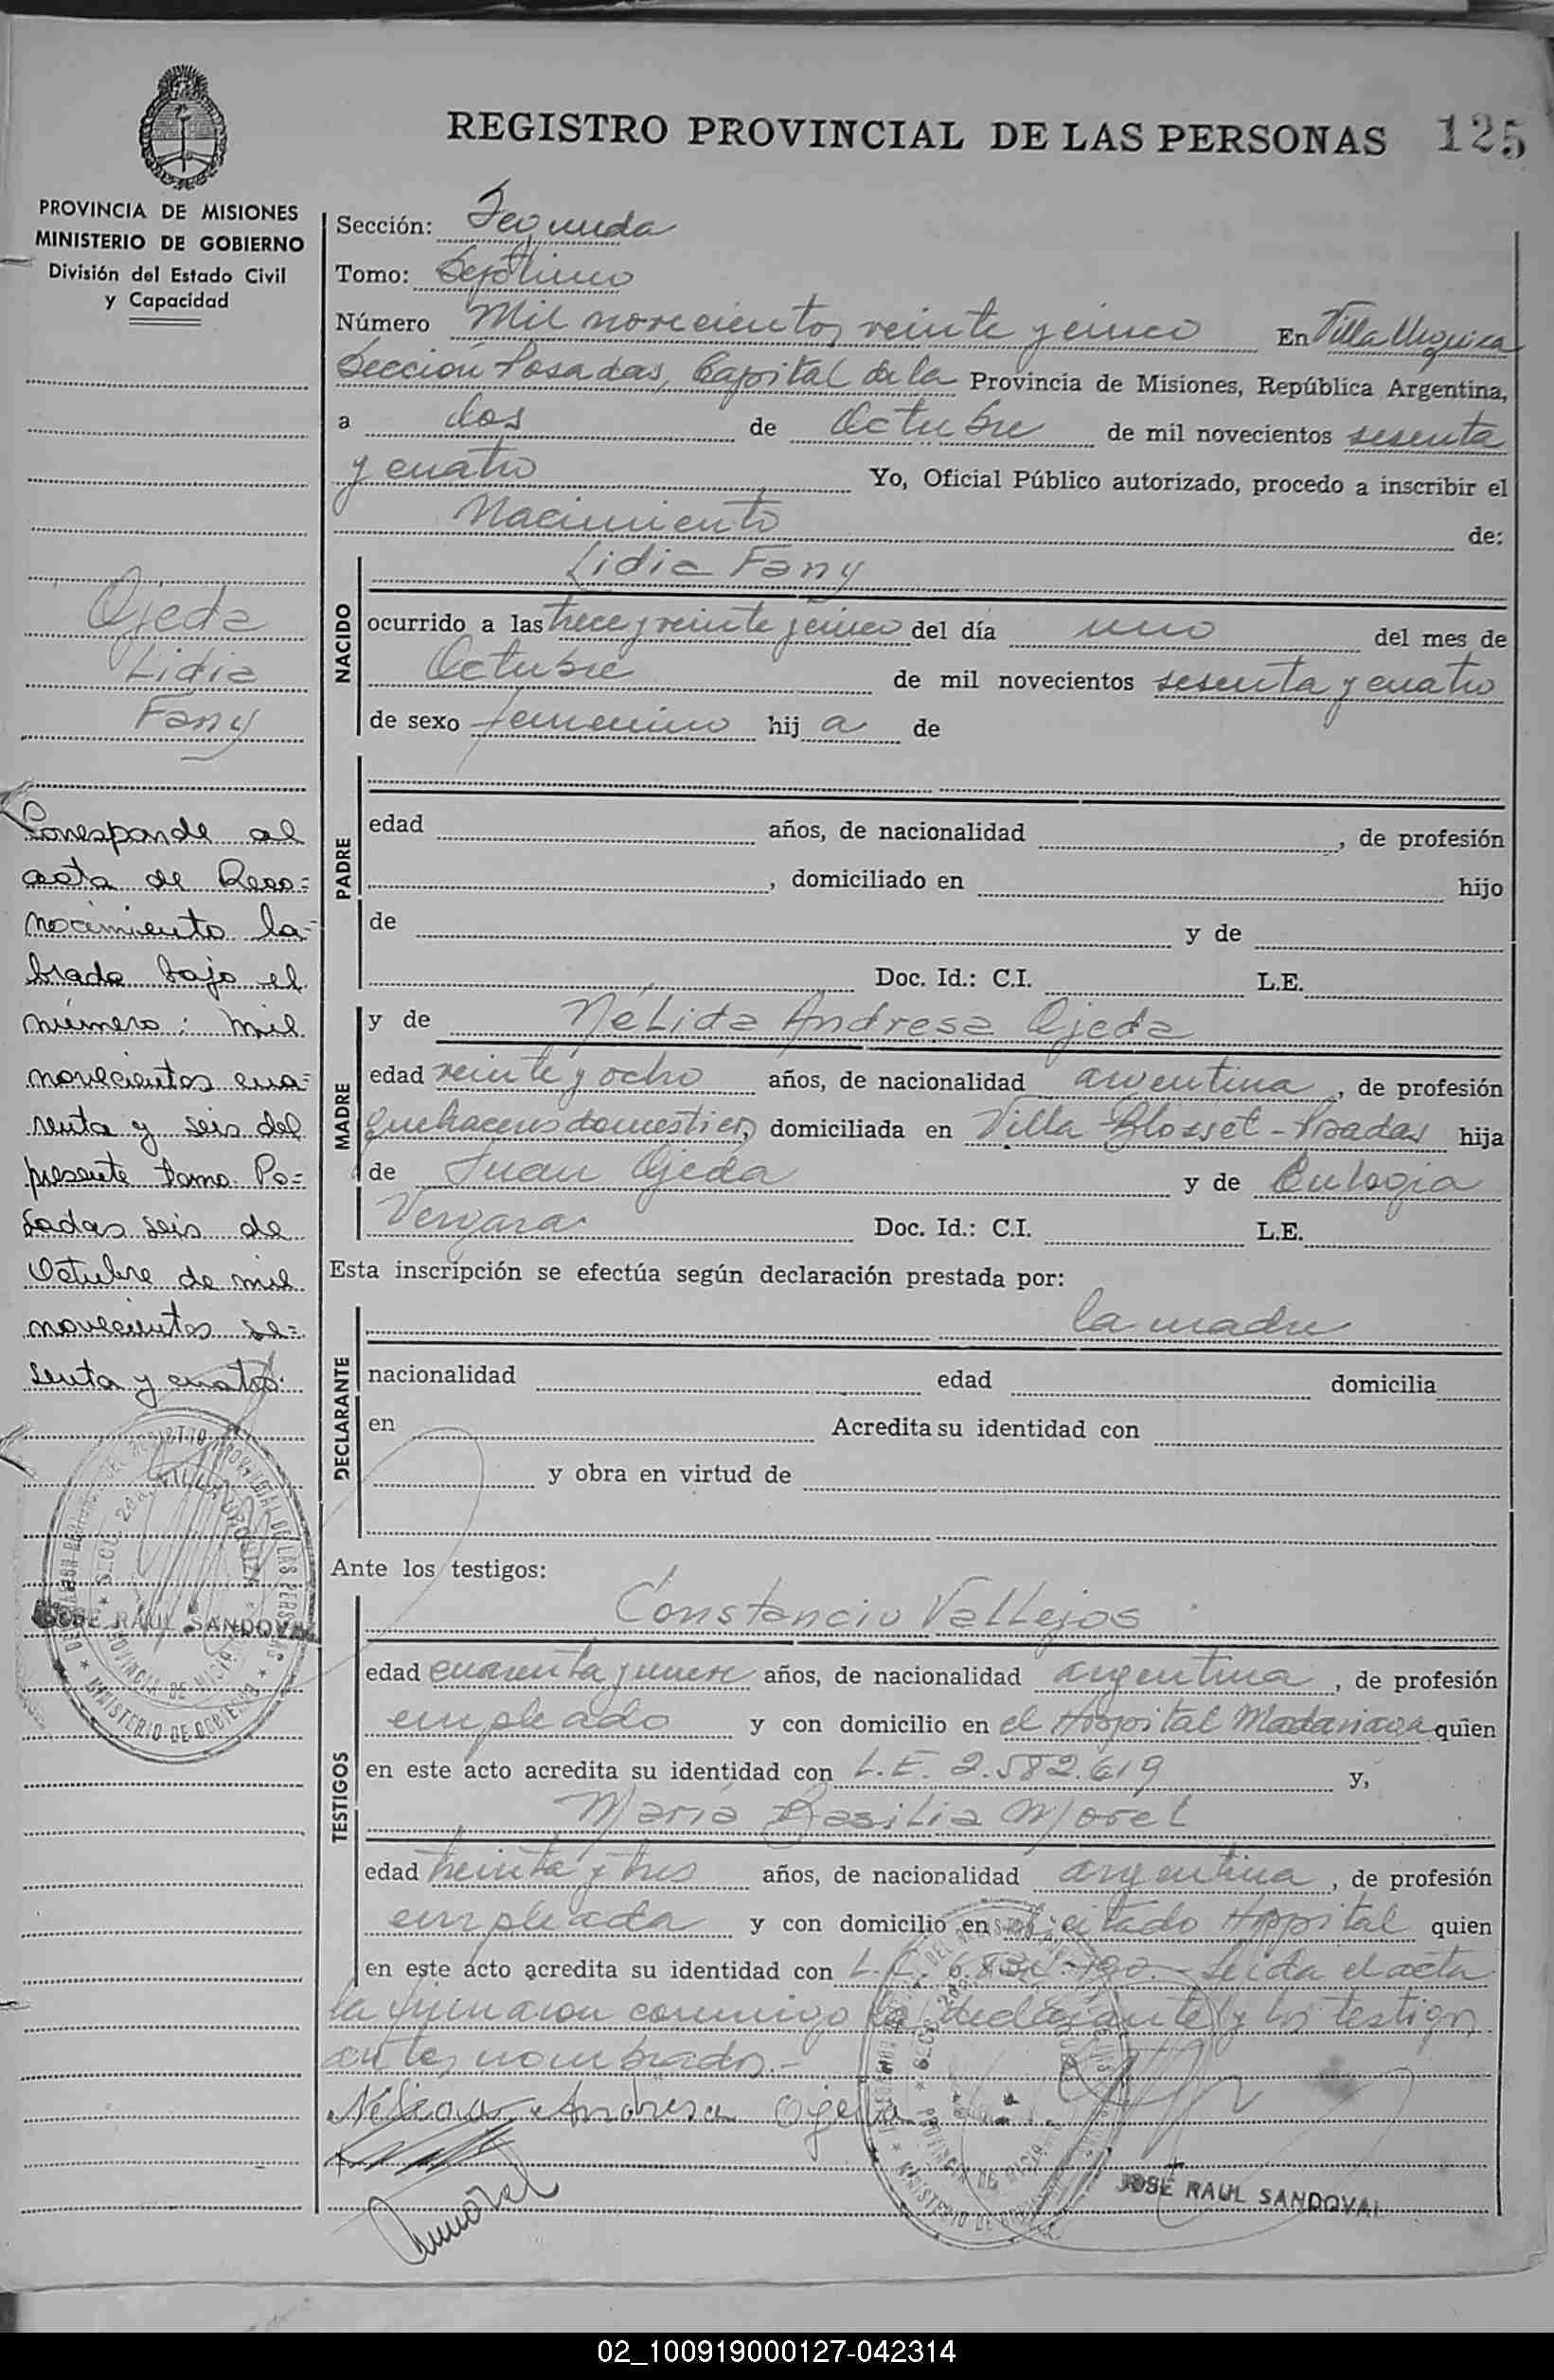 REGISTRO PROVINCIAL DE LAS PERSONAS 125
PROVINCIA DE MISIONES
MINISTERIO DE GOBIERNO
División del Estado Civil
y Capacidad
Ojeda
Lidia
Fany
Corresponde al
acta de Reco=
nocimiento la=
brada bajo el
número: mil
novecientos cua=
renta y seis del
presente tomo. Po=
sadas seis de
Octubre de mil
novecientos se=
senta y cuatro.
JOSE RAUL SANDOVAL
Sección: Segunda
Tomo: Septimo
Número Mil novecientos veinte y cinco En Villa Urquiza
Sección Posadas, Capital de la Provincia de Misiones, República Argentina,
a dos de Octubre de mil novecientos sesenta
y cuatro Yo, Oficial Público autorizado, procedo a inscribir el
Nacimiento de:
NACIDO
Lidia Fany
ocurrido a las trece y veinte y cinco del día uno del mes de
Octubre de mil novecientos sesenta y cuatro
de sexo femenino hij a de
PADRE
edad años, de nacionalidad , de profesión
, domiciliado en hijo
de y de
Doc. Id.: C.I. L.E.
MADRE
y de Nélida Andresa Ojeda
edad veinte y ocho años, de nacionalidad argentina , de profesión
quehaceres domesticos, domiciliada en Villa Blosset - Posadas hija
de Juan Ojeda y de Eulogia
Vergara. Doc. Id.: C.I. L.E.
Esta inscripción se efectúa según declaración prestada por:
DECLARANTE
la madre
nacionalidad edad domicilia
en Acredita su identidad con
y obra en virtud de
Ante los testigos:
TESTIGOS
Constancio Vallejos
edad cuarenta y nueve años, de nacionalidad argentina , de profesión
empleado y con domicilio en el Hospital Madariaga quien
en este acto acredita su identidad con L.E. 2.582.619 y,
María Basilia Morel
edad treinta y tres años, de nacionalidad argentina , de profesión
empleada y con domicilio en citado Hospital quien
en este acto acredita su identidad con Leida el acta
la firmaron conmigo la declarante y los testigos
antes nombrados.-
Nélida Andresa Ojeda
JOSE RAUL SANDOVAL
02_100919000127-042314